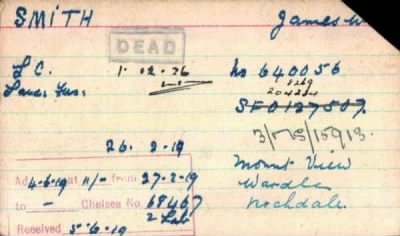 SMITH James W
DEAD
L C. 1. 02. 26 No 640056
Lanc. Fus. 1269
204244
SF0127507.
3/MS/15913.
26. 2. 19
Mount View
Wardle
Rochdale.
Ad at 4-6-19 11/- from 27-2-19
to - Chelsea No. 68467
2 Lab
Received 5-6-19